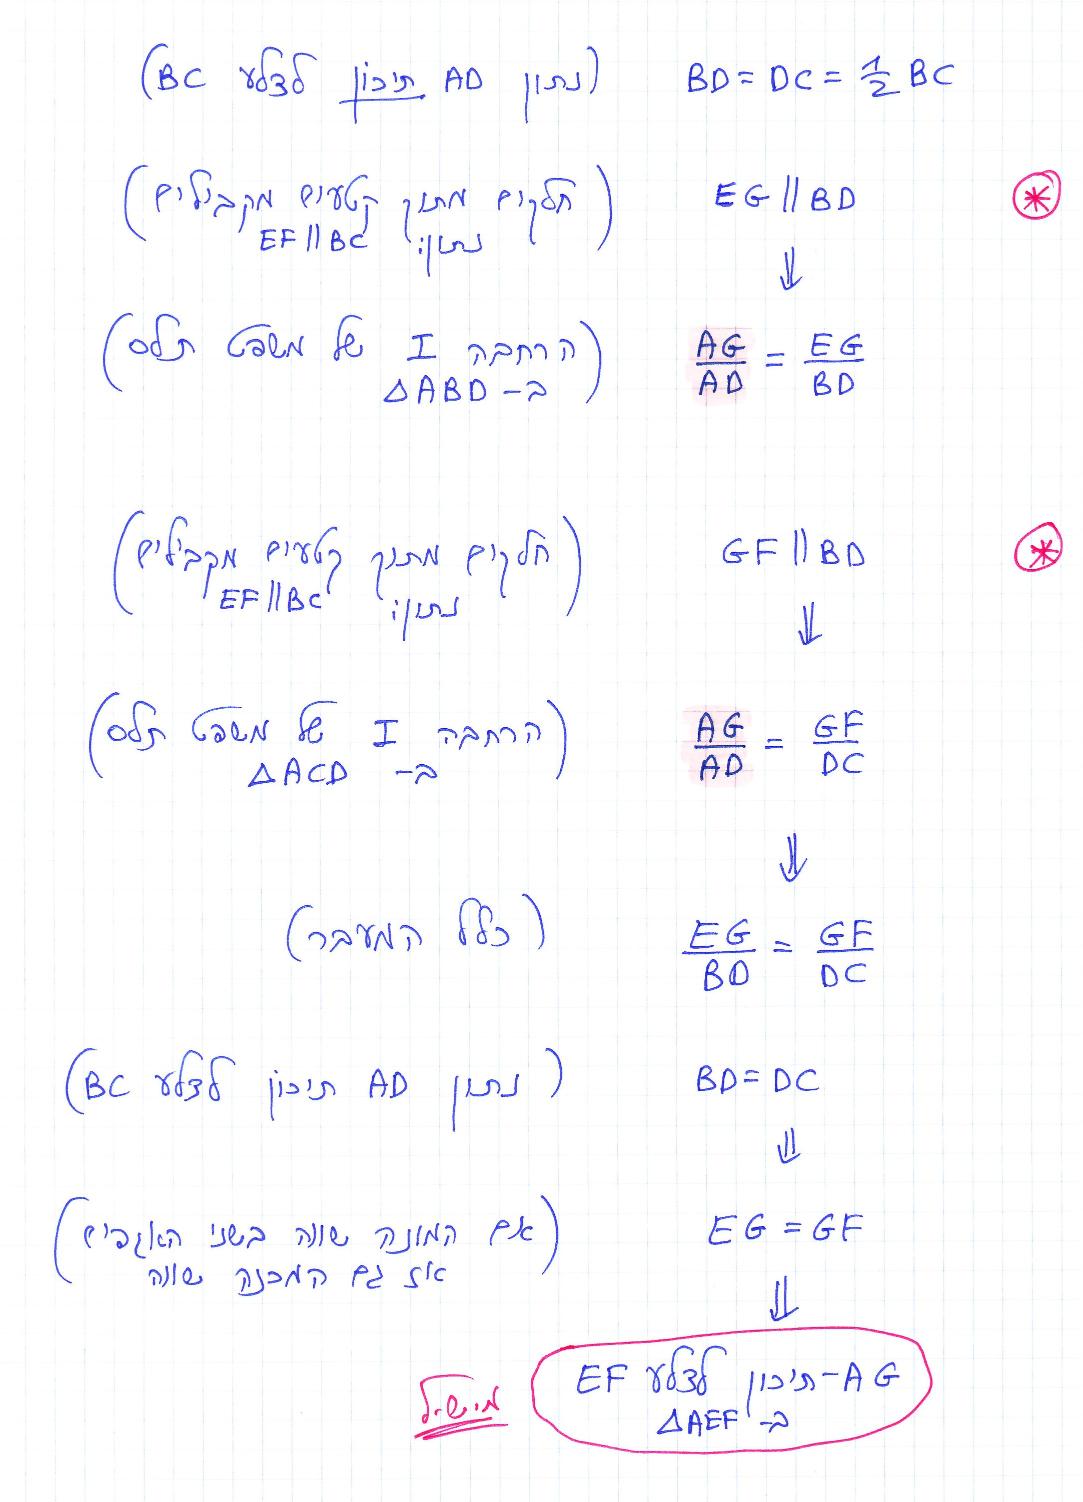 BD = DC = 1/2 BC (נתון AD תיכון לצלע BC)
EG || BD (חלקים מתוך קטעים מקבילים
נתון: EF || BC)
⇓
AG/AD = EG/BD (הרחבה I של משפט תלס
ב- ΔABD)
GF || BD (חלקים מתוך קטעים מקבילים
נתון: EF || BC)
⇓
AG/AD = GF/DC (הרחבה I של משפט תלס
ב- ΔACD)
⇓
EG/BD = GF/DC (כלל המעבר)
BD = DC (נתון AD תיכון לצלע BC)
⇓
EG = GF (אם המונה שווה בשני האגפים
אז גם המכנה שווה)
⇓
AG - תיכון לצלע EF
ב- ΔAEF
מ.ש.ל